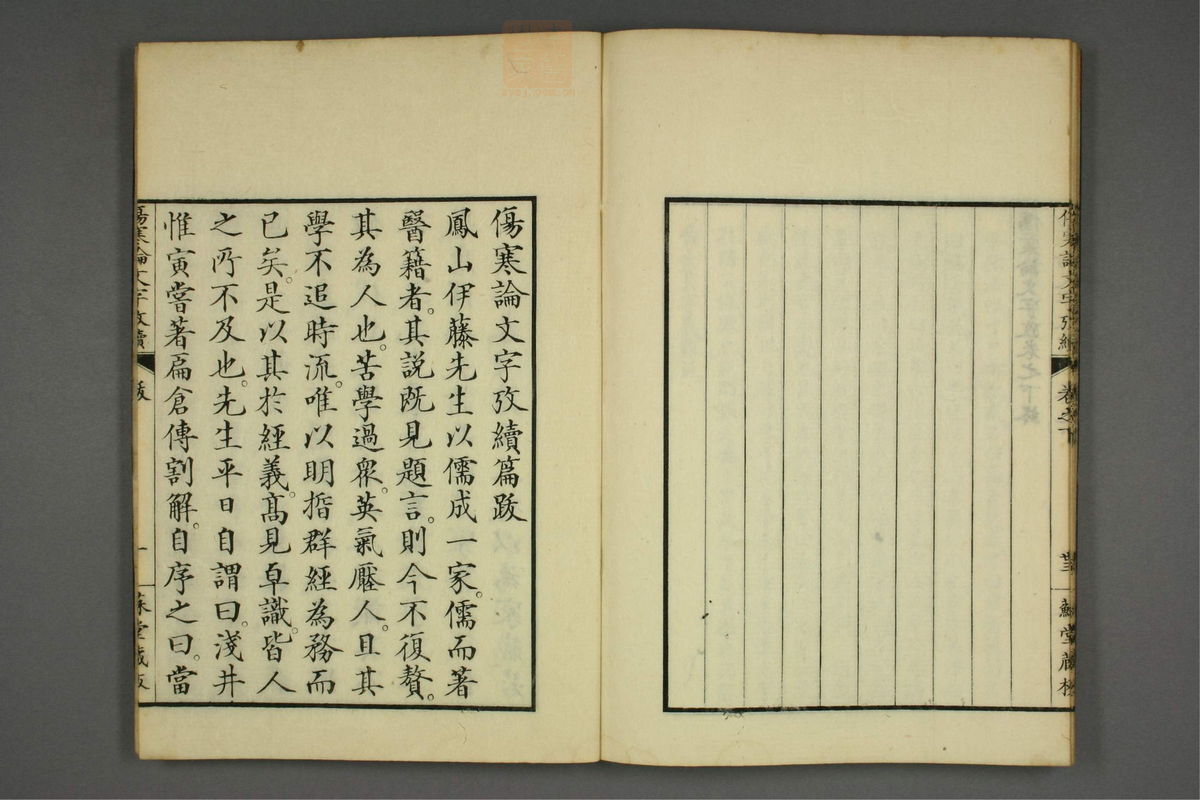 卷之下
傷寒論文字攷續篇跋
鳳山伊藤先生以儒成一家。儒而著
醫籍者。其說既見題言。則今不復贅。
其為人也。苦學過衆。英氣壓人。且其
學不追時流。唯以明指群經為務而
已矣。是以其於經義。高見卓識。皆人
之所不及也。先生平日自謂曰。淺井
惟寅嘗著扁倉傳割解。自序之曰。當
傷寒論文字攷續
跋
一